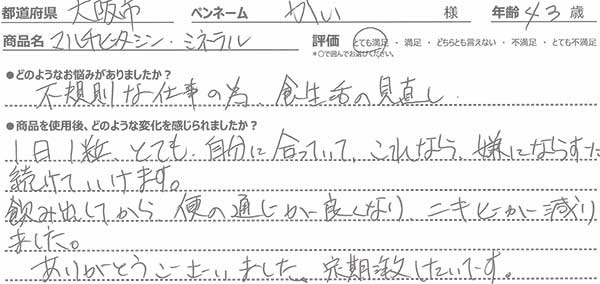 都道府県 大阪市 ペンネーム かい 様 年齢 43 歳
商品名 マルチビタミン・ミネラル 評価 とても満足・満足・どちらとも言えない・不満足・とても不満足
*○で囲んでお選びください。
●どのようなお悩みがありましたか？
不規則な仕事の為、食生活の見直し.
●商品を使用後、どのような変化を感じられましたか？
1日1粒、とても、自分に合っていて、これなら、嫌にならずに
続けていけます。
飲み出してから、便の通じが良くなり、ニキビが減り
ました。
ありがとうございました、定期致したいです。